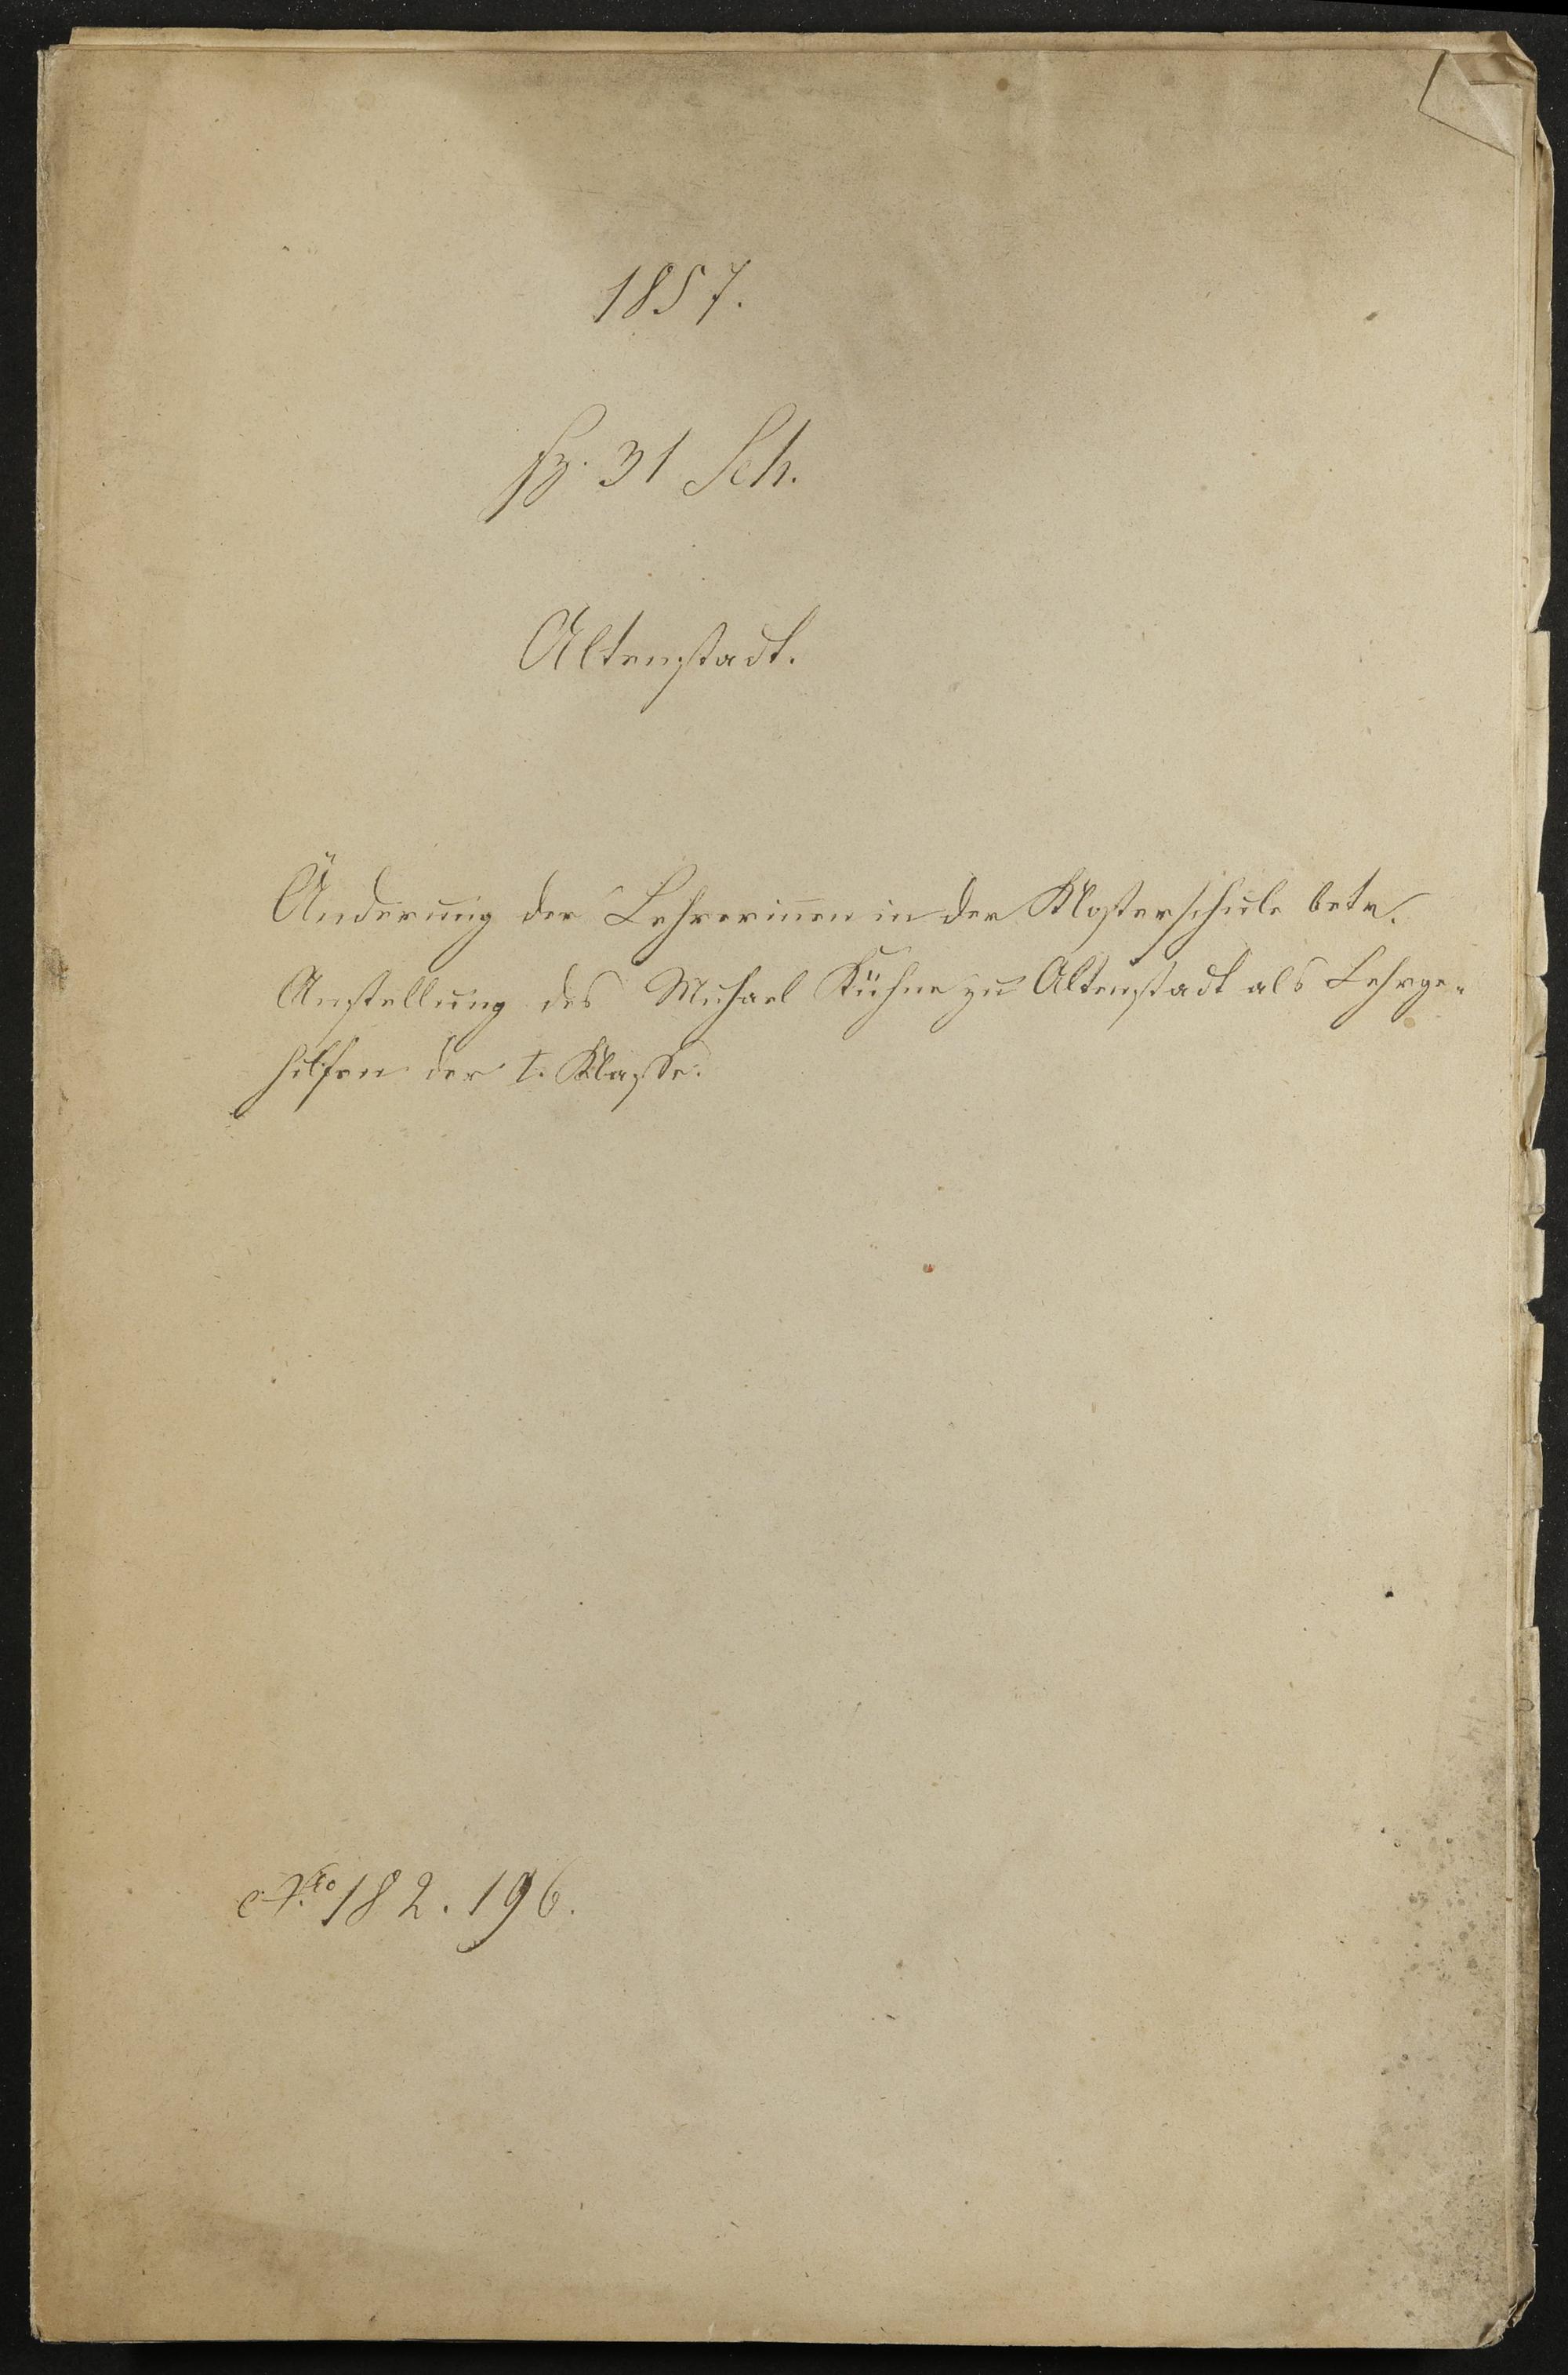 1857.
fz. 31 Sch.
Altenstadt.
Änderung der Lehrerinen in der Klosterschule betr.
Anstellung des Michael Kühne zu Altenstadt als Lehrge-
hilfen der I. Klasse.
No 182. 196.